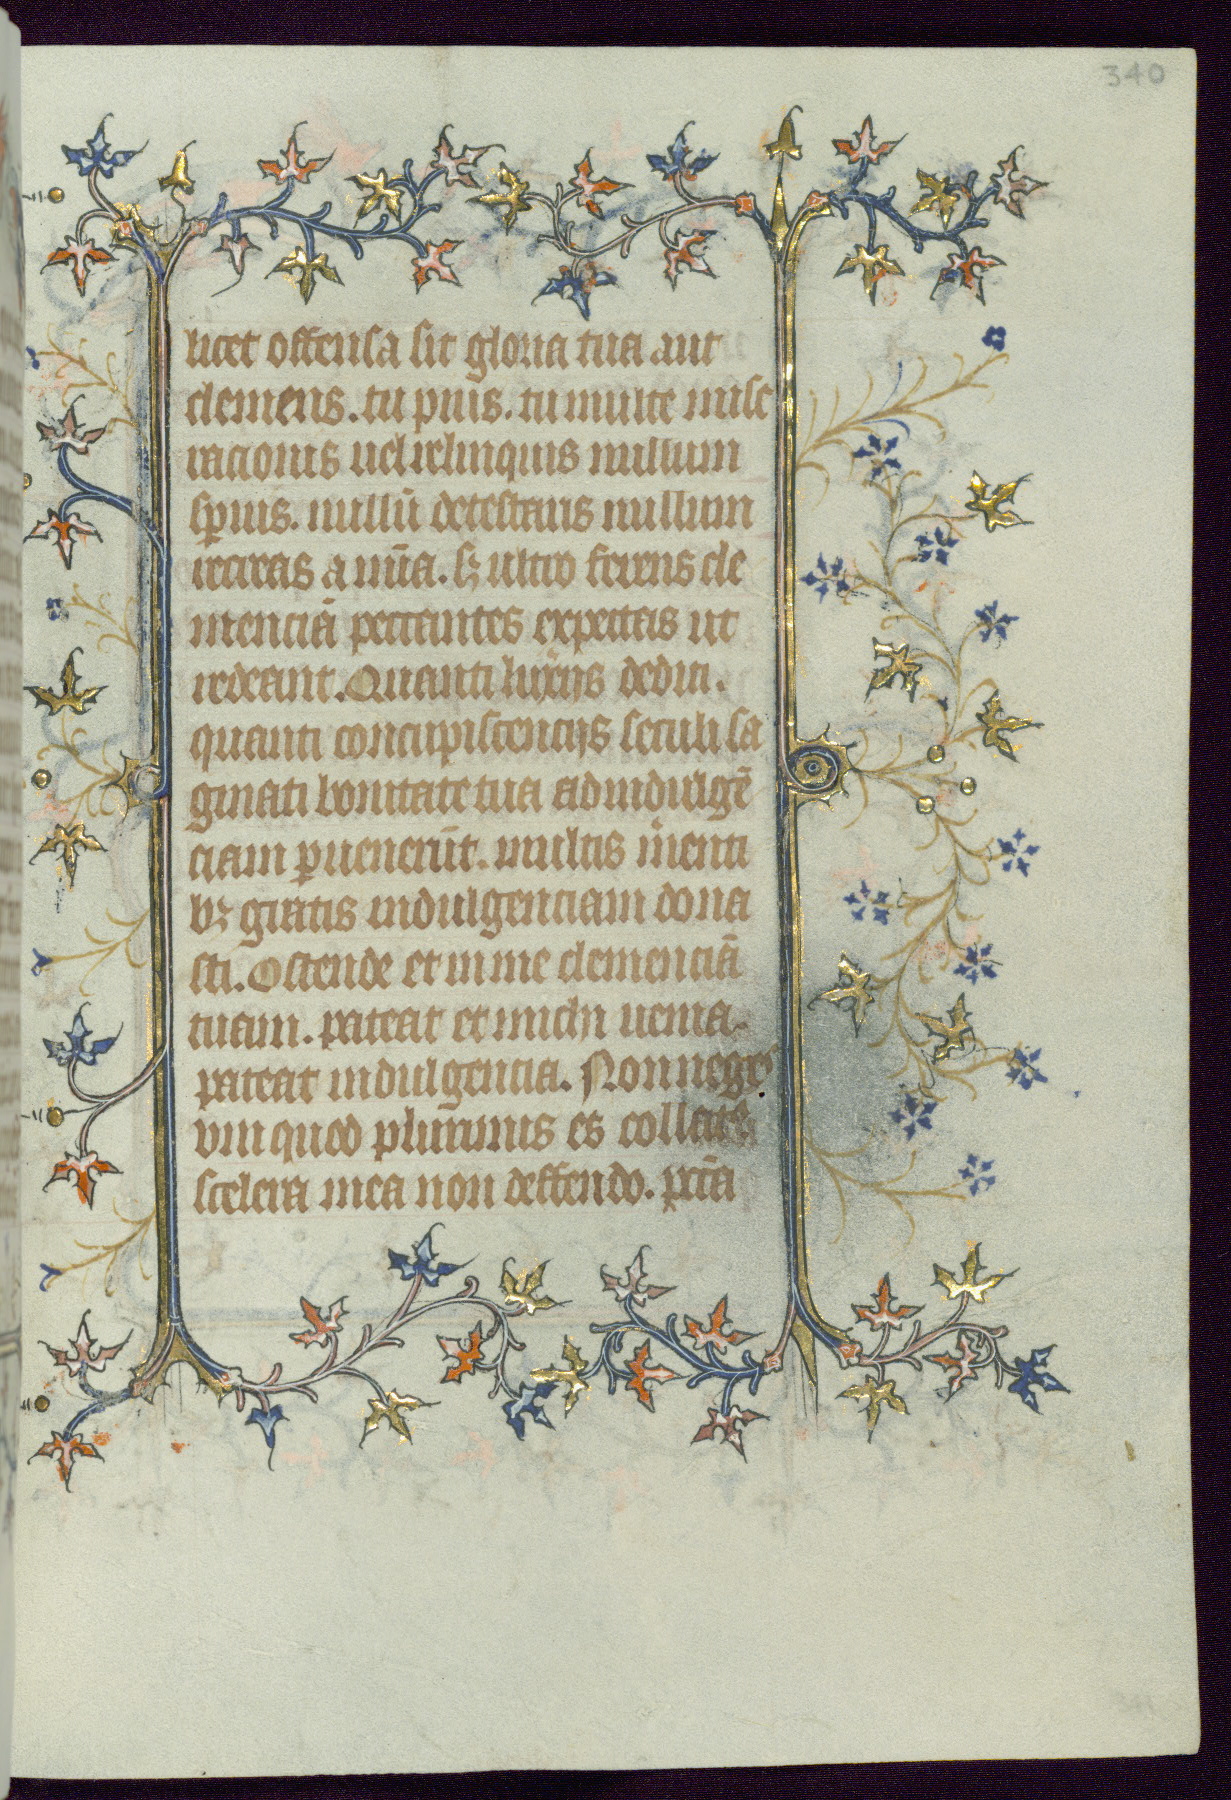 340
licet offensa sit gloria tua aut
clemens. tu pius. tu multe mise
racionis uel relinquis nullum
spernis. nullū detestaris nullum
reicras a uīa. sz ultro ferens cle
menciā peccantes expectas ut
redeant. Quanti luxiis dediti.
quanti concupiscencijs seculi sa
ginati bonitate tua ad indulgē
ciam puenerūt. multis ĩmenti
bz gratis indulgenciam dona
sti. Ostende et in me clemenciā
tuam. pateat et michi uenia.
pateat indulgencia. Non neges
vni quod plurimis es
scelera mea non deffendo. pctā